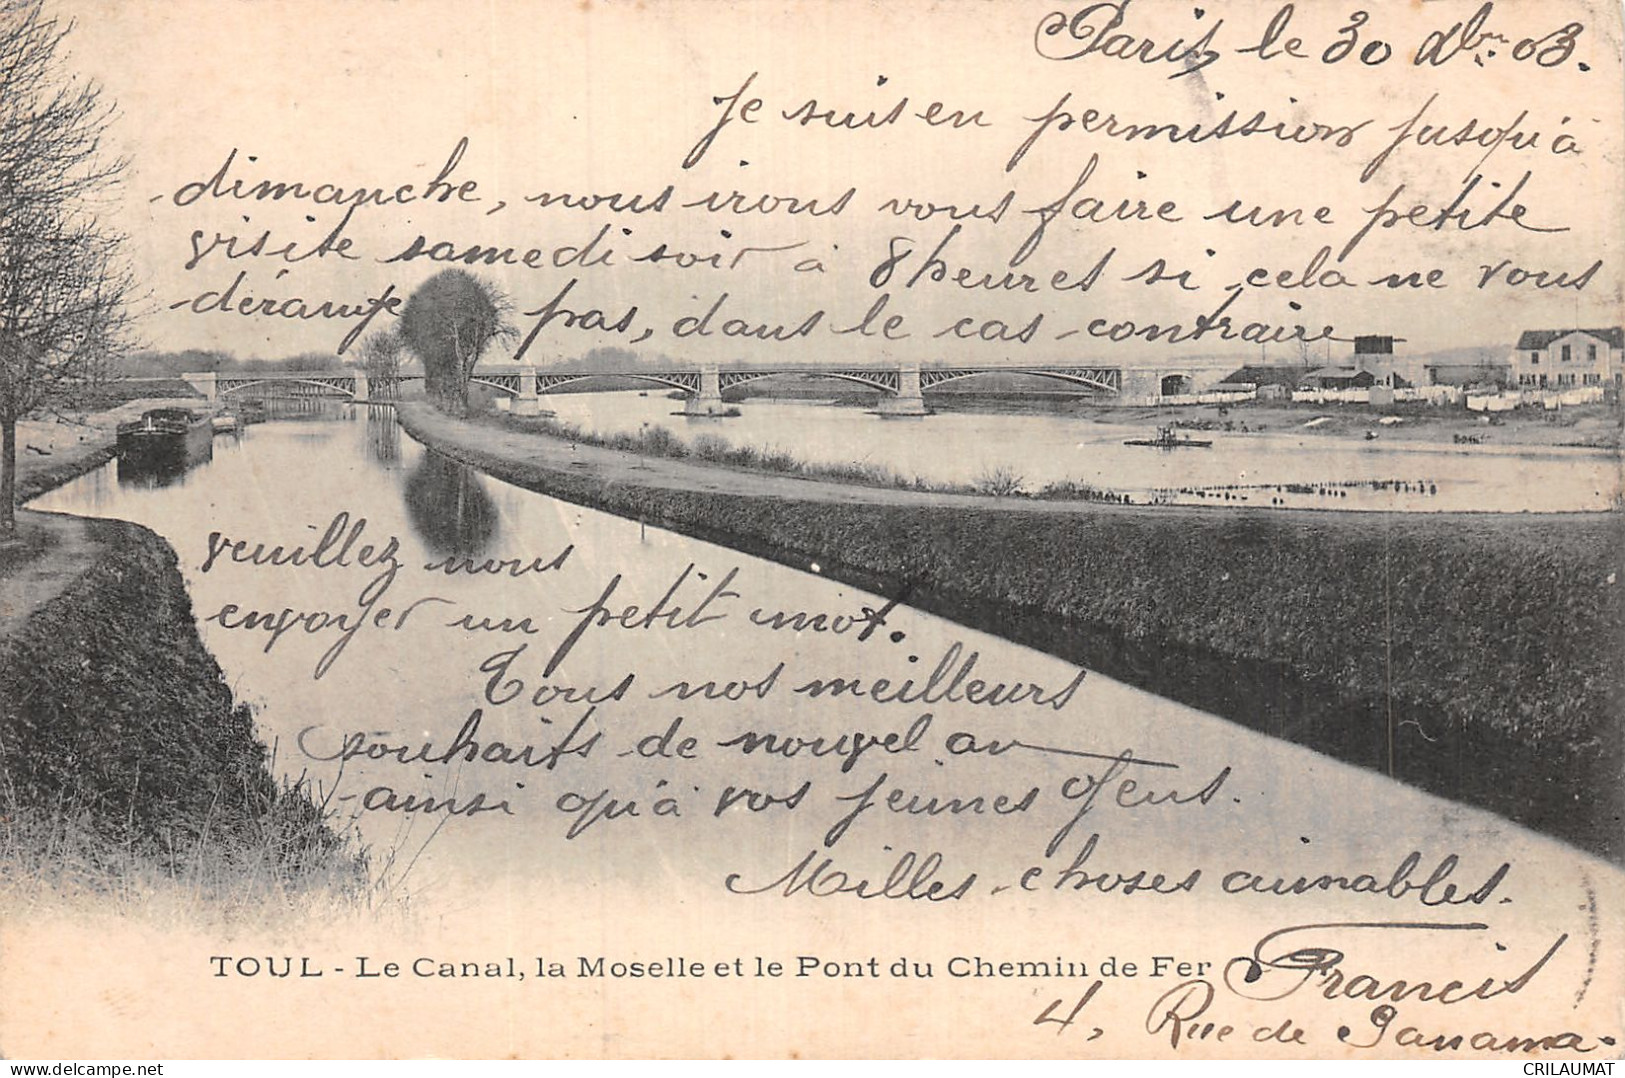 Paris, le 30 Xbre 03.
Je suis en permission jusqu'à
dimanche, nous irons vous faire une petite
visite samedi soir à 8 heures si cela ne vous
dérange pas, dans le cas contraire
veuillez nous
envoyer un petit mot.
Tous nos meilleurs
souhaits de nouvel an
ainsi qu'à vos jeunes gens.
Milles choses aimables.
TOUL - Le Canal, la Moselle et le Pont du Chemin de Fer
Francis
4, Rue de Panama.
CRILAUMAT